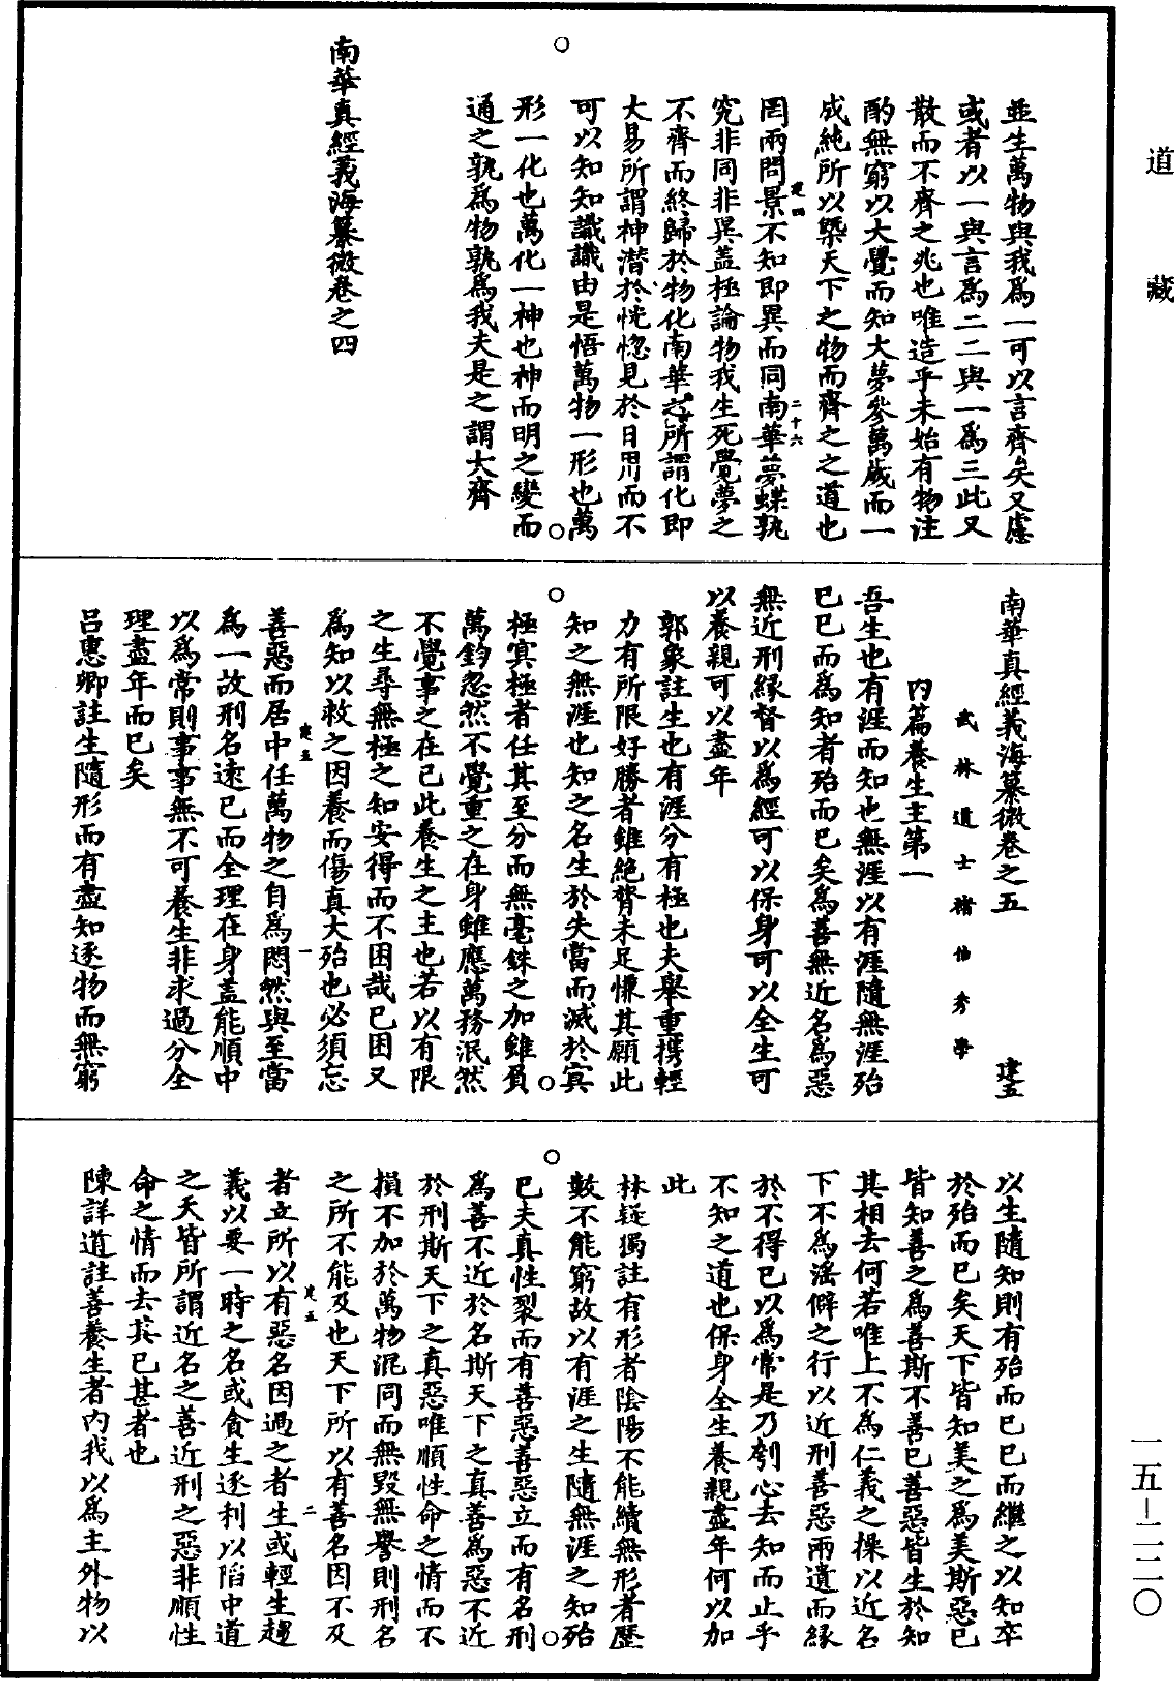 道藏
並生萬物與我爲一可以言齊矣又慮
或者以一與言爲二二與一爲三此又
散而不齊之兆也唯造乎未始有物注
酌無窮以大覺而知大夢參萬歲而一
成純所以槩天下之物而齊之之道也
建四
二十六
罔兩問景不知即異而同南華夢蝶孰
究非同非異盖極論物我生死覺夢之
不齊而終歸於物化南華之所謂化即
大易所謂神潜於恍惚見於日用而不
可以知知識識由是悟萬物一形也萬
形一化也萬化一神也神而明之變而
通之孰爲物孰爲我夫是之謂大齊
南華真經義海纂微卷之四
南華真經義海纂微卷之五
建五
武林道士褚伯秀學
內篇養生主第一
吾生也有涯而知也無涯以有涯隨無涯殆
已已而爲知者殆而已矣爲善無近名爲惡
無近刑緣督以爲經可以保身可以全生可
以養親可以盡年
郭象註生也有涯分有極也夫舉重攜輕
力有所限好勝者雖絕膂未足慊其願此
知之無涯也知之名生於失當而滅於冥
極冥極者任其至分而無毫銖之加雖負
萬鈞忽然不覺重之在身雖應萬務泯然
不覺事之在己此養生之主也若以有限
之生尋無極之知安得而不困哉已困又
爲知以救之因養而傷真大殆也必須忘
建五
一
善惡而居中任萬物之自爲悶然與至當
爲一故刑名遠已而全理在身盖能順中
以爲常則事事無不可養生非求過分全
理盡年而已矣
呂惠卿註生隨形而有盡知逐物而無窮
以生隨知則有殆而已已而繼之以知卒
於殆而已矣天下皆知美之爲美斯惡已
皆知善之爲善斯不善已善惡皆生於知
其相去何若唯上不爲仁義之操以近名
下不爲淫僻之行以近刑善惡兩遺而緣
於不得已以爲常是乃刳心去知而止乎
不知之道也保身全生養親盡年何以加
此
林疑獨註有形者陰陽不能續無形者歷
數不能窮故以有涯之生隨無涯之知殆
已夫真性裂而有善惡善惡立而有名刑
爲善不近於名斯天下之真善爲惡不近
於刑斯天下之真惡唯順性命之情而不
損不加於萬物混同而無毀無譽則刑名
之所不能及也天下所以有善名因不及
建五
二
者立所以有惡名因過之者生或輕生趨
義以要一時之名或貪生逐利以陷中道
之夭皆所謂近名之善近刑之惡非順性
命之情而去其已甚者也
陳詳道註善養生者內我以爲主外物以
一五－二二〇